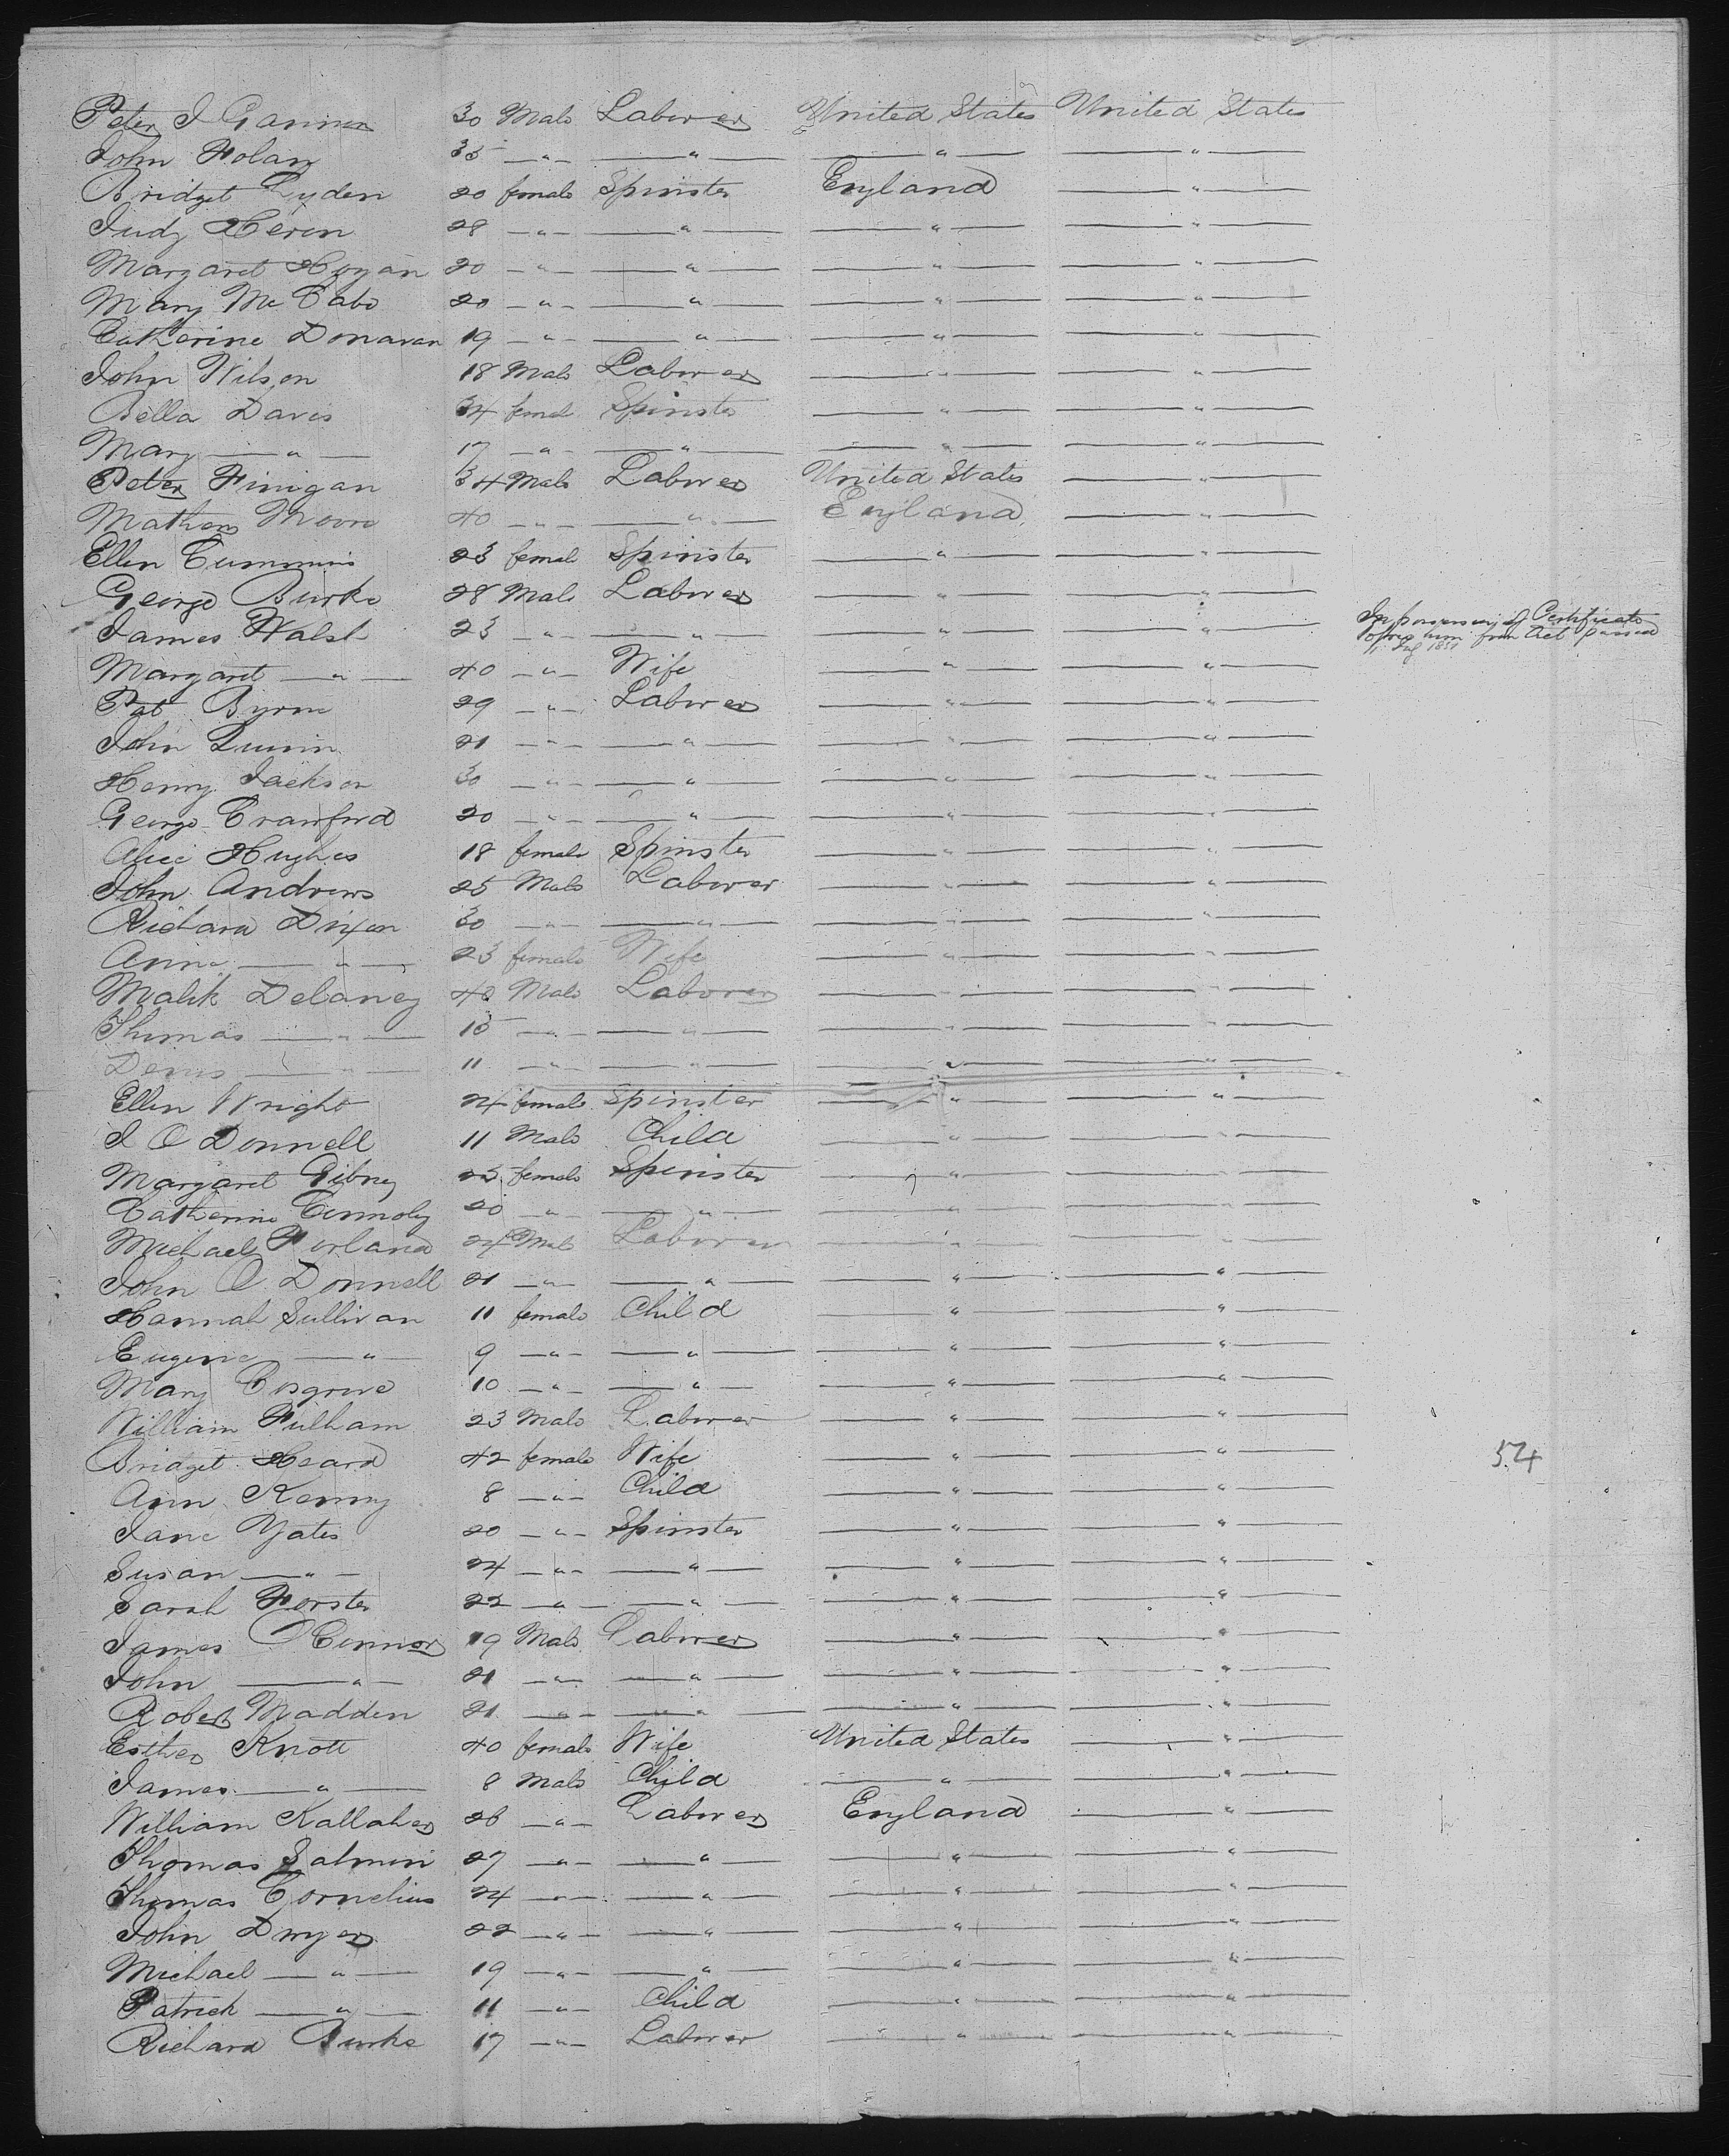 Peter J Gannon 30 Male Laborer United States United States
John Folan 35 " " " "
Bridget Lyden 20 female Spinster England "
Judy Heren 28 " " " "
Margaret Hogan 20 " " " "
Mary McCabe 20 " " " "
Catherine Donavan 19 " " " "
John Wilson 18 Male Laborer " "
Bella Davis 34 female Spinster " "
Mary " 17 " " " "
Peter Finigan 34 Male Laborer United States "
Mathew Moore 40 " " England "
Ellen Cummins 23 female Spinster " "
George Burke 28 Male Laborer " "
James Walsh 23 " " " " In possession of Certificate
him from Act passed
1851
Margaret " 40 " Wife " "
Pat Byrne 29 " Laborer " "
John Quinn 21 " " " "
Henry Jackson 30 " " " "
George Crawford 20 " " " "
Alice Hughes 18 female Spinster " "
John Andrews 25 Male Laborer " "
Richard Dixon 30 " " " "
Anne " 23 female Wife " "
Malik Delaney 40 Male Laborer " "
Thomas " 15 " " " "
Denis " 11 " " " "
Ellen Wright 24 female Spinster " "
J O Donnell 11 Male Child " "
Margaret Gibney 25 female Spinster " "
Catherine Connoly 20 " " " "
Michael Forland 24 Male Laborer " "
John O Donnell 21 " " " "
Hannah Sullivan 11 female Child " "
Eugene " 9 " " " "
Mary Cosgrove 10 " " " "
William Fulham 23 Male Laborer " "
Bridget Heard 42 female Wife " " 54
Ann Kenny 8 " Child " "
Jane Yates 20 " Spinster " "
Susan " 24 " " " "
Sarah Forster 22 " " " "
James O Connor 19 Male Laborer " "
John " 21 " " " "
Robert Madden 21 " " " "
Esther Knott 40 female Wife United States "
James " 8 Male Child " "
William Kallaher 26 " Laborer England "
Thomas Salmon 27 " " " "
Thomas Cornelius 24 " " " "
John Dwyer 22 " " " "
Michael " 19 " " " "
Patrick " 11 " Child " "
Richard Burke 17 " Laborer " "